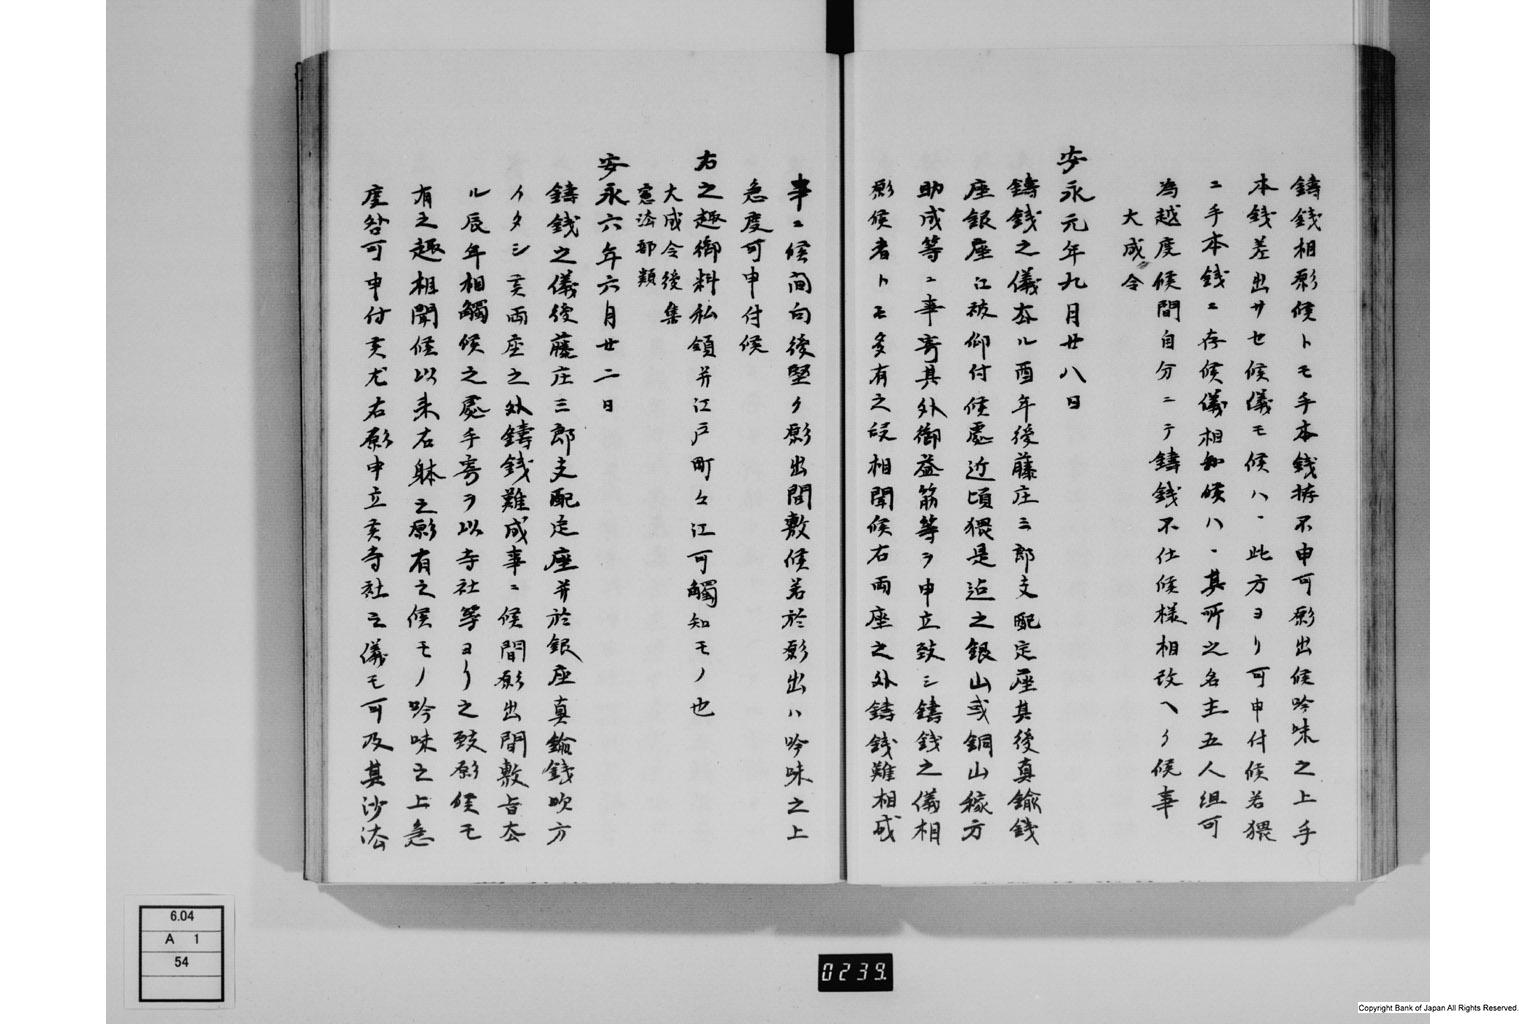 鋳銭相願候トモ手本銭拵不申可願出候吟味之上手
本銭差出サセ候儀モ候ハヽ此方ヨリ可申付候若猥
ニ手本銭ニ存候儀相知候ハヽ其所之名主五人組可
為越度候間自分ニテ鋳銭不仕候様相改ヘク候事
大成令
安永元年九月廿八日
鋳銭之儀去ル酉年後藤庄三郎支配定座其後真鍮銭
座銀座江被仰付候処近頃猥是迄之銀山或銅山稼方
助成等ニ事寄其外御益筋等ヲ申立致シ鋳銭之儀相
願候者トモ多有之段相聞候右両座之外鋳銭難相成
事ニ候間向後堅ク願出間敷候若於願出ハ吟味之上
急度可申付候
右之趣御料私領并江戸町々江可触知モノ也
大成令後集
憲法部類
安永六年六月廿二日
鋳銭之儀後藤庄三郎支配定座并於銀座真鍮銭吹方
イタシ其両座之外鋳銭難成事ニ候間願出間敷旨去
ル辰年相觸候之處手寄ヲ以寺社等ヨリ之致願候モ
有之趣相聞候以来右躰之願有之候モノ吟味之上急
度咎可申付其尤右願申立其寺社之儀モ可及其沙汰
6.04
A 1
54
0239.
Copyright Bank of Japan All Rights Reserved.